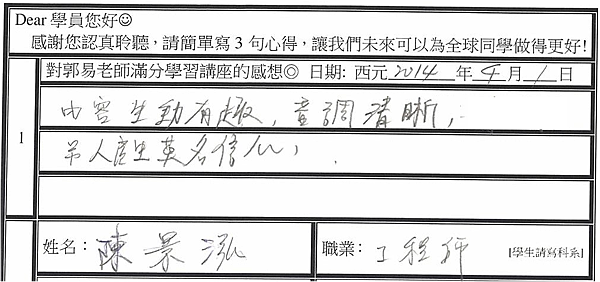 Dear 學員您好☺
感謝您認真聆聽，請簡單寫 3 句心得，讓我們未來可以為全球同學做得更好!
對郭易老師滿分學習講座的感想◎ 日期: 西元 2014 年 4 月 1 日
1
內容生動有趣，音調清晰，
另人產生莫名信心，
姓名： 陳景泓 職業： 工程師 [學生請寫科系]